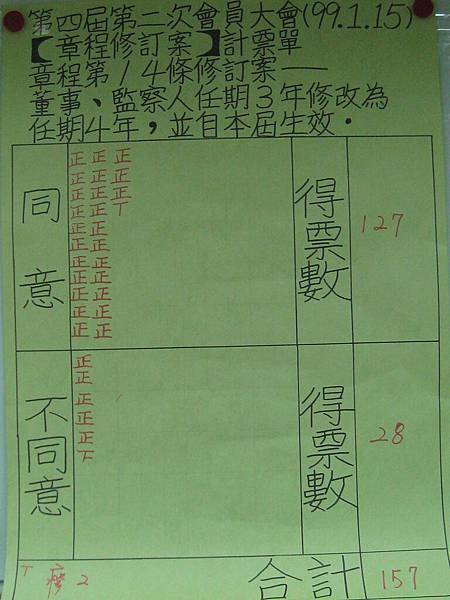 第四屆第二次會員大會(99.1.15)
【章程修訂案】計票單
章程第14條修訂案——
董事、監察人任期3年修改為
任期4年，並自本屆生效．
同意
正正正
正正正
正正正
正正丅
正正
正正
正正
正正
正正
正正
正正
得票數
127
不同意
正
正
正
正
正
下
得票數
28
丅 廢 2
合計
157